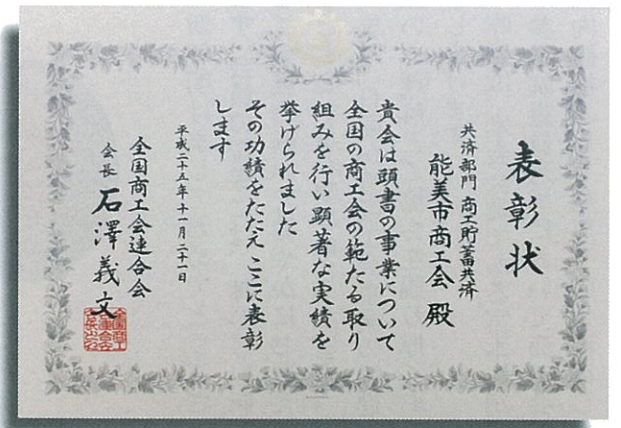 表彰状
共済部門 商工貯蓄共済
能美市商工会 殿
貴会は頭書の事業について
全国の商工会の範たる取り
組みを行い顕著な実績を
挙げられました
その功績をたたえ ここに表彰
します
平成二十五年十一月二十一日
全国商工会連合会
会長 石澤義文